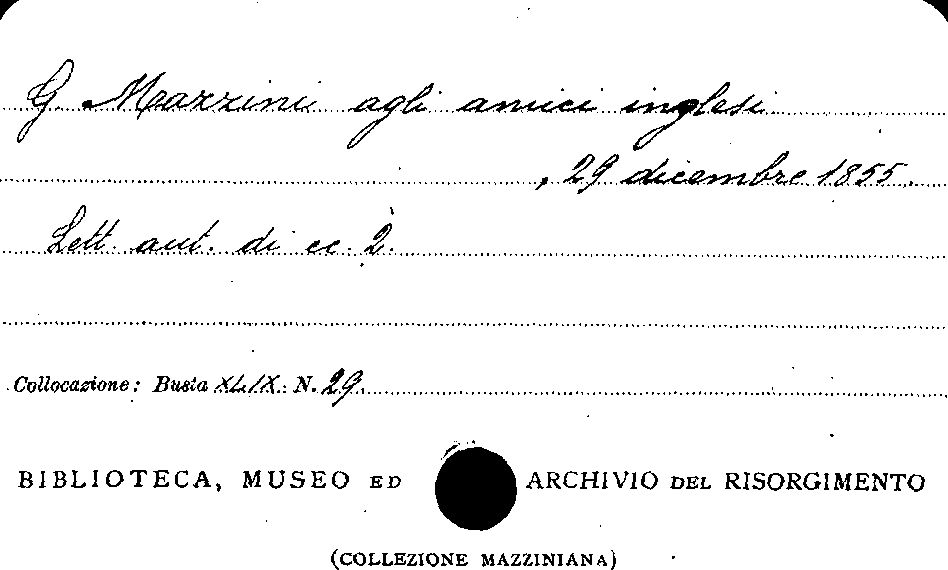 G. Mazzini agli amici inglesi
, 29 dicembre 1855.
Lett. aut. di cc. 2.
Collocazione: Busta XLIX. N. 29.
BIBLIOTECA, MUSEO ED ARCHIVIO DEL RISORGIMENTO
(COLLEZIONE MAZZINIANA)